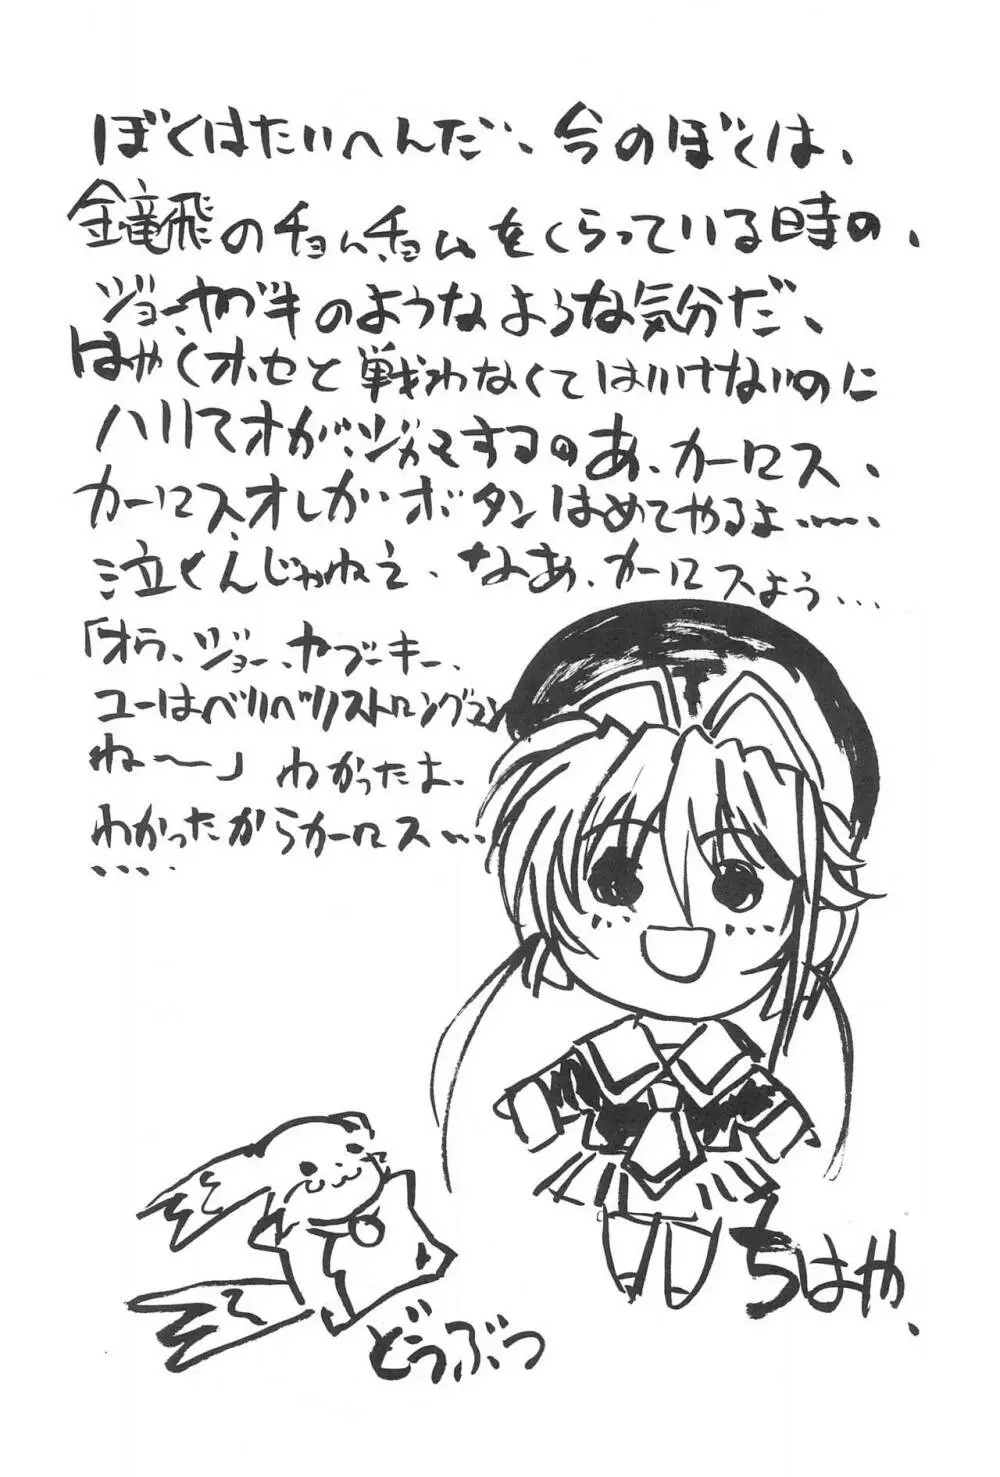 ぼくはたいへんだ、今のぼくは、
金竜飛のチョムチョムをくらっている時の、
ジョー、ヤブキのようなような気分だ、
はやくホセと戦わなくてはいけないのに
ハリマオがジャマするのあ、カーロス、
カーロス、オレがボタンはめてやるよ……
泣くんじゃねえ、なあ、カーロスよう…
「オウ、ジョー、ヤブーキー、
ユーはベリベリストロングマン
ね〜」わかったよ、
わかったからカーロス……
……
ちはや、
どうぶつ